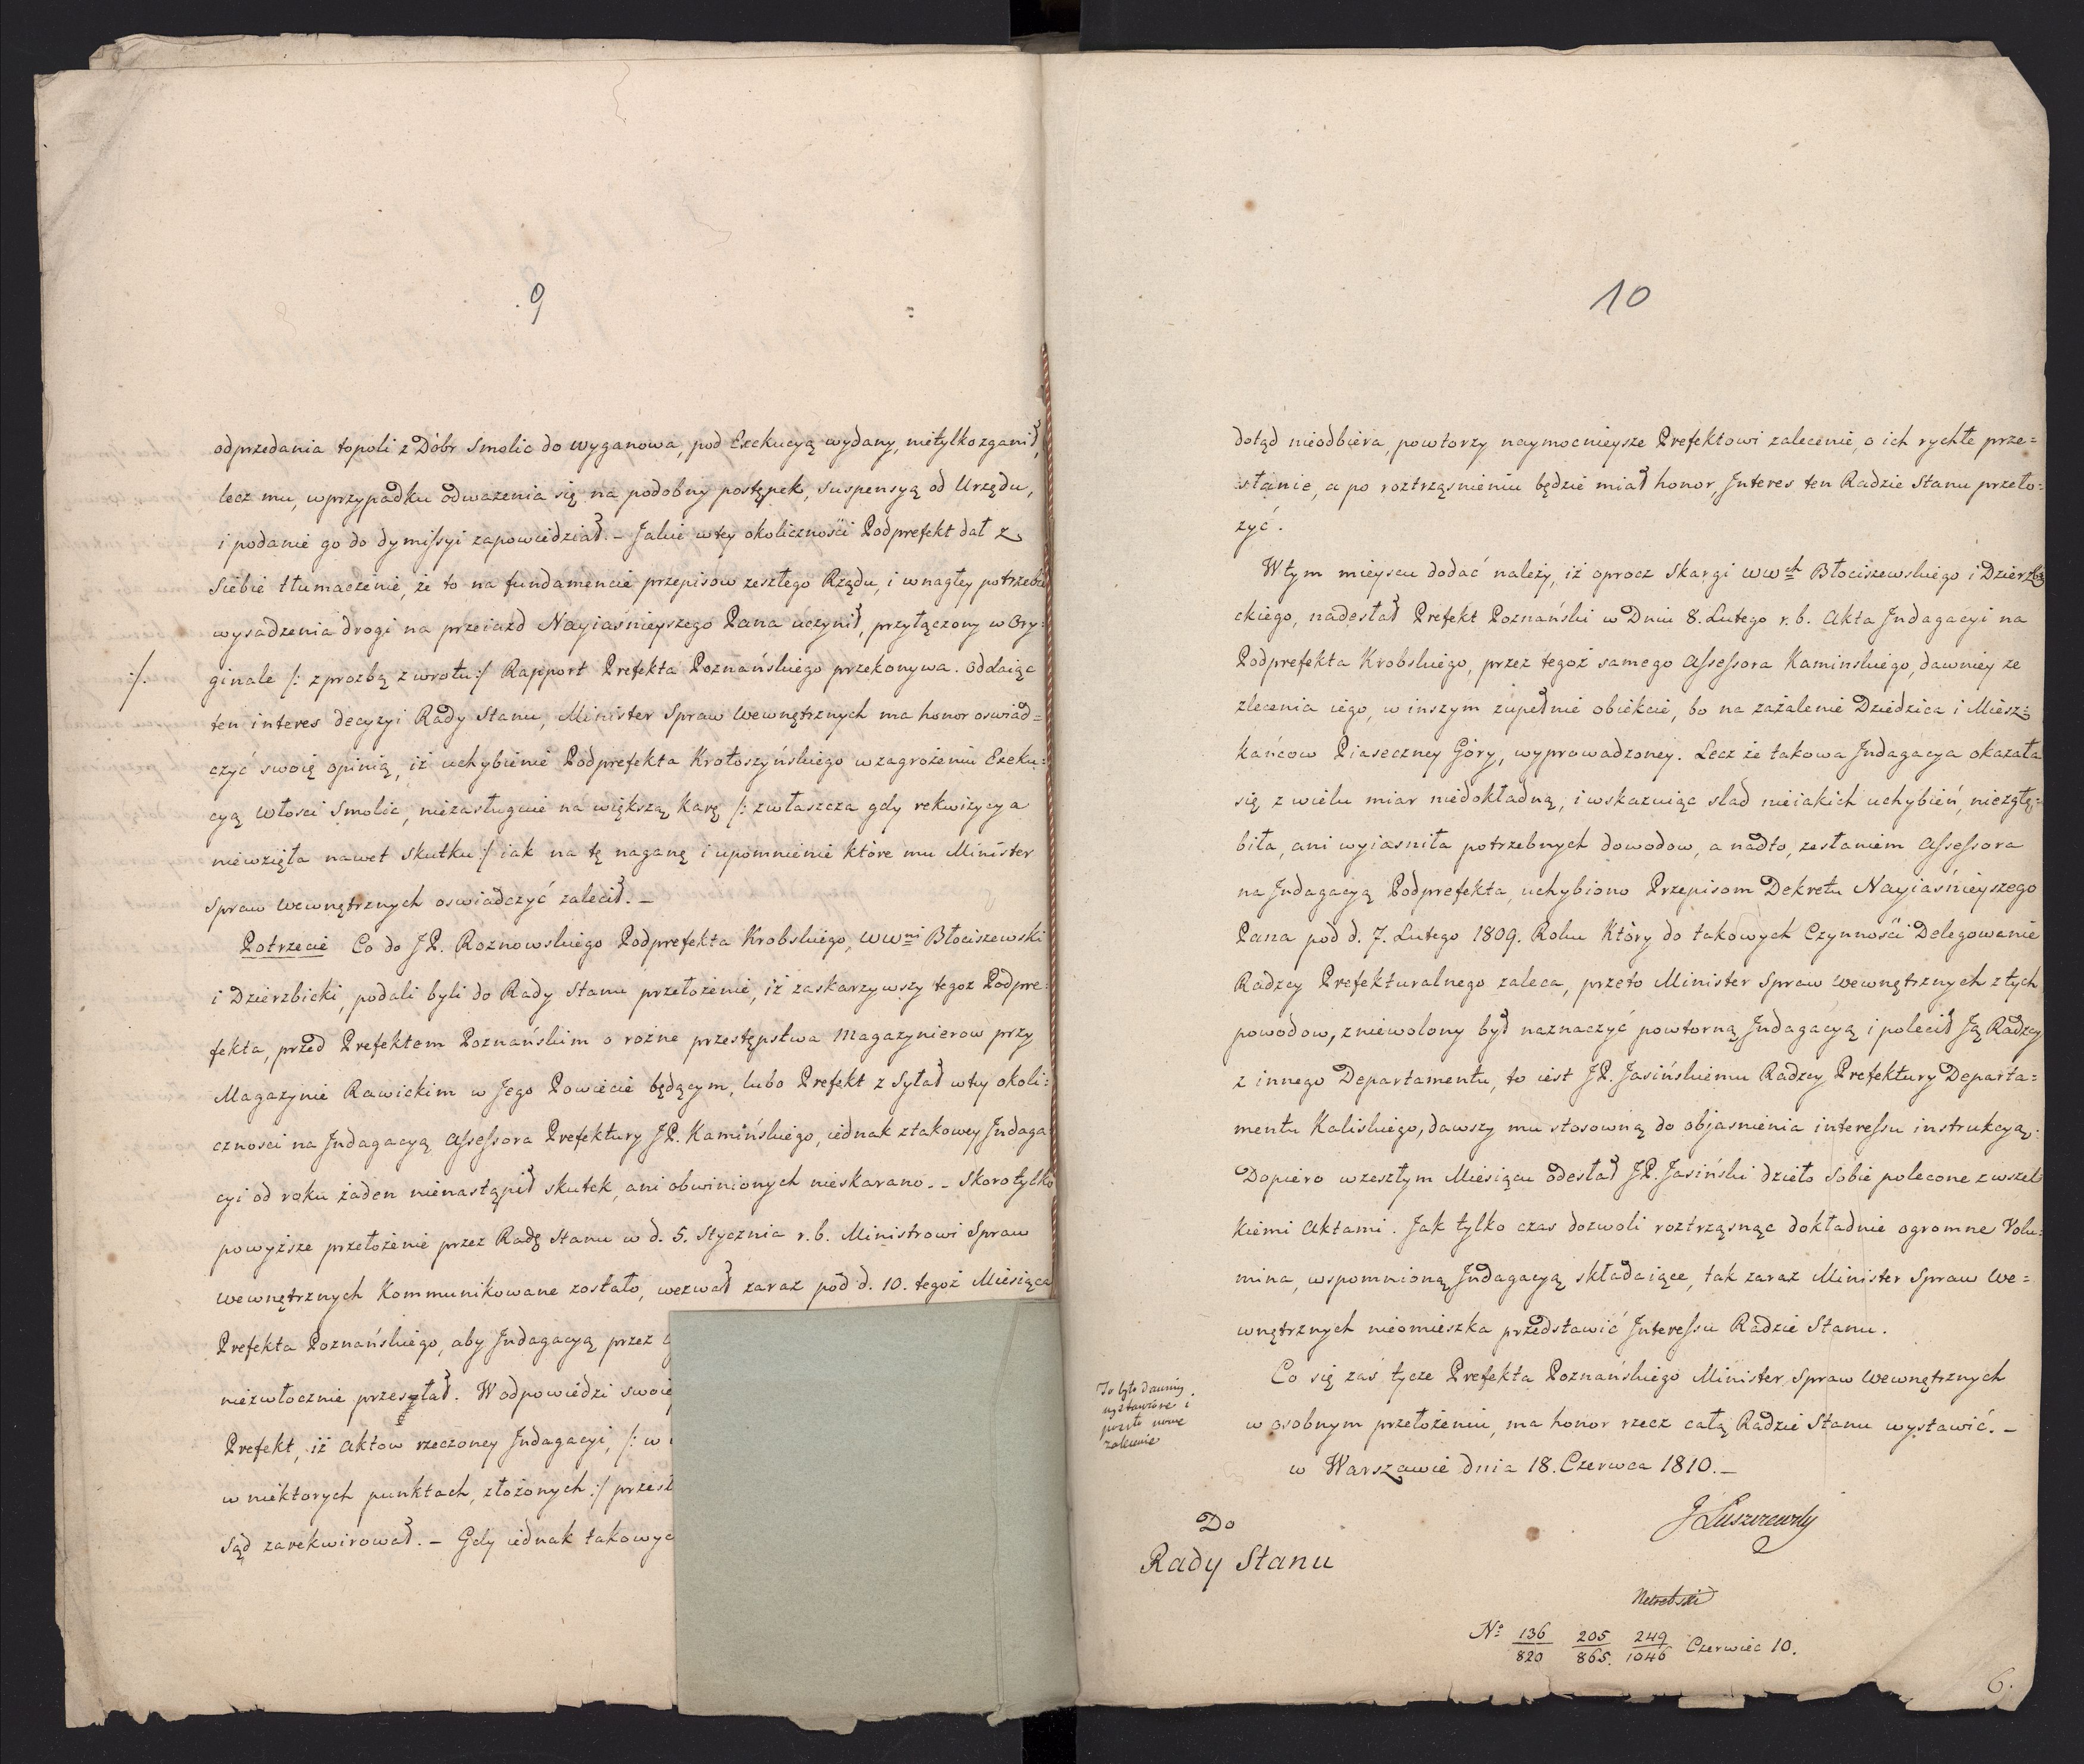 9
odprzedania topoli z Dóbr Smolic do Wyganowa, pod Exekucyą wydany, nietylko zganił,
lecz mu, w przypadku odwazenia się na podobny postępek, Suspensyą od Urzędu,
i podanie go do dymissyi zapowiedział. – Jakie w tey okoliczności Podprefekt dał z
siebie tłumaczenie, że to na fundamencie przepisow zeszłego Rządu, i w nagłey potrzebie
wysadzenia drogi na przeiazd Nayiaśnieyszego Pana uczynił, przyłączony w Ory=
:/. ginale /: z prozbą zwrotu :/ Rapport Prefekta Poznańskiego przekonywa. Oddaiąc
ten interes decyzyi Rady Stanu, Minister Spraw Wewnętrznych ma honor oswiad=
czyć swoię opinią, iż uchybienie Podprefekta Krotoszyńskiego w zagrożeniu Exeku=
cyą Włosci Smolic, niezasługuie na większą karę /: zwłaszcza gdy rekwizycya
niewzięła nawet skutku :/ iak na tę naganę i upomnienie które mu Minister
Spraw Wewnętrznych oswiadczyć zalecił. –
Potrzecie Co do JP. Roznowskiego Podprefekta Krobskiego, WWni Błociszewski
i Dzierzbicki, podali byli do Rady Stanu przełożenie, iż zaskarzywszy tegoz Podpre=
fekta, przed Prefektem Poznańskim o rożne przestępstwa Magazynierow przy
Magazynie Rawickim w Jego Powiecie będącym, lubo Prefekt z Syłał w tey okoli=
cznosci na Indagacyą Assessora Prefektury JP. Kamińskiego, iednak z takowey Indaga
cyi od roku żaden nienastąpił skutek, ani obwinionych nieskarano. – Skoro tylko
powyższe przełożenie przez Radę Stanu w d. 5. Stycznia r. b. Ministrowi Spraw
Wewnętrznych Kommunikowane zostało, wezwał zaraz pod d. 10. tegoż Miesiąca
Prefekta Poznańskiego, aby Indagacyą przez
niezwłocznie przesyłał. W odpowiedzi swoie
Prefekt, iż Aktow rzeczoney Indagacyi, /: w
w niektorych punktach, złożonych :/ przesł
Sąd zarekwirował. – Gdy iednak takowyc
10
dotąd nieodbiera, powtorzy naymocnieysze Prefektowi zalecenie, o ich rychłe prze=
słanie, a po roztrząsnieniu będzie miał honor, Interes ten Radzie Stanu przeło=
zyć.
W tym mieyscu dodać należy, iż oprocz Skargi WWch Błociszewskiego i Dzierzbi
ckiego, nadesłał Prefekt Poznański w Dniu 8. Lutego r. b. Akta Indagacyi na
Podprefekta Krobskiego, przez tegoż samego Assessora Kaminskiego, dawniey ze
zlecenia iego, w inszym zupełnie obiekcie, bo na zażalenie Dziedzica i Miesz=
kańcow Piaseczney Góry, wyprowadzoney. Lecz że takowa Indagacya okazała
się z wielu miar niedokładną, i wskazuiąc slad nieiakich uchybień, niezgłę=
biła, ani wyiasniła potrzebnych dowodow, a nadto, zesłaniem Assessora
na Indagacyą Podprefekta, uchybiono Przepisom Dekretu Nayiaśnieyszego
Pana pod d. 7. Lutego 1809. Roku Który do takowych Czynności Delegowanie
Radzcy Prefekturalnego zaleca, przeto Minister Spraw Wewnętrznych z tych
powodow, zniewolony był naznaczyć powtorną Indagacyą i polecił Ją Radzcy
z innego Departamentu, to iest JP. Jasińskiemu Radzcy Prefektury Departa=
mentu Kaliskiego, dawszy mu stosowną do objasnienia interessu instrukcyą.
Dopiero w zeszłym Miesiącu odesłał JP. Jasiński dzieło sobie polecone z wszel
kiemi Aktami. Jak tylko czas dozwoli roztrząsnąc dokładnie ogromne Volu=
mina, wspomnioną Indagacyą składaiące, tak zaraz Minister Spraw We=
wnętrznych nieomieszka przedstawić Interessu Radzie Stanu.
Co się zaś tycze Prefekta Poznańskiego Minister Spraw Wewnętrznych
w osobnym przełożeniu, ma honor rzecz całą Radzie Stanu wystawić. –
To było dawniey
wystawione i
poszło nowe
zalecenie
w Warszawie dnia 18. Czerwca 1810. –
J Łuszczewsky
Do
Rady Stanu
No 136/820 205/865. 249/1046 Czerwiec 10.
6.